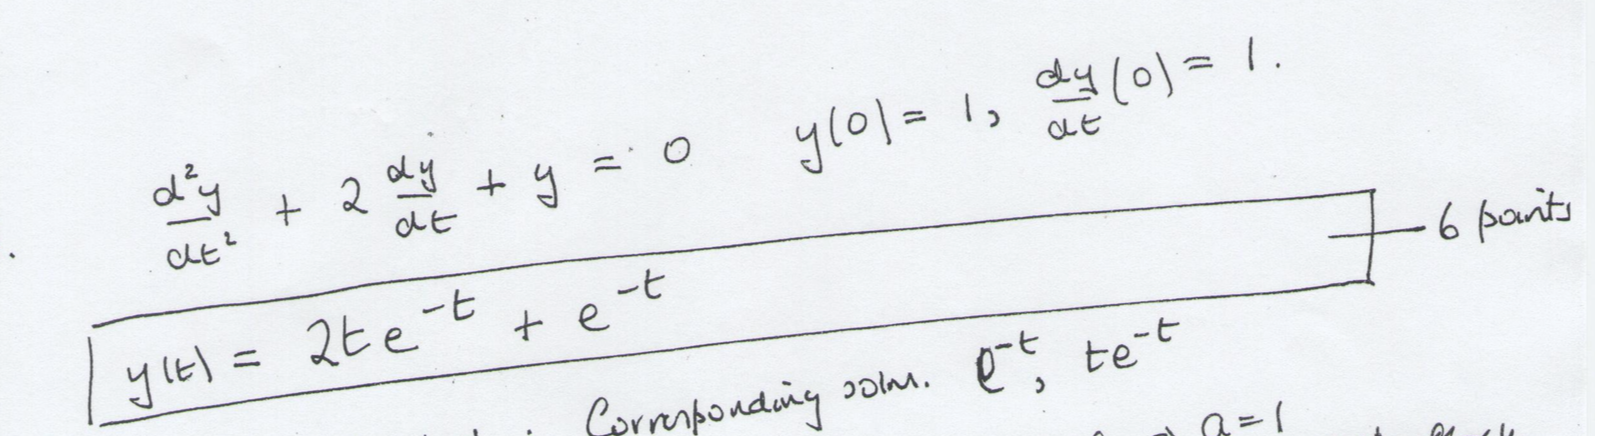 d²y/dt² + 2 dy/dt + y = 0 y(0) = 1, dy/dt (0) = 1.
y(t) = 2te^-t + e^-t — 6 points
Corresponding soln. e^-t, te^-t
a=1